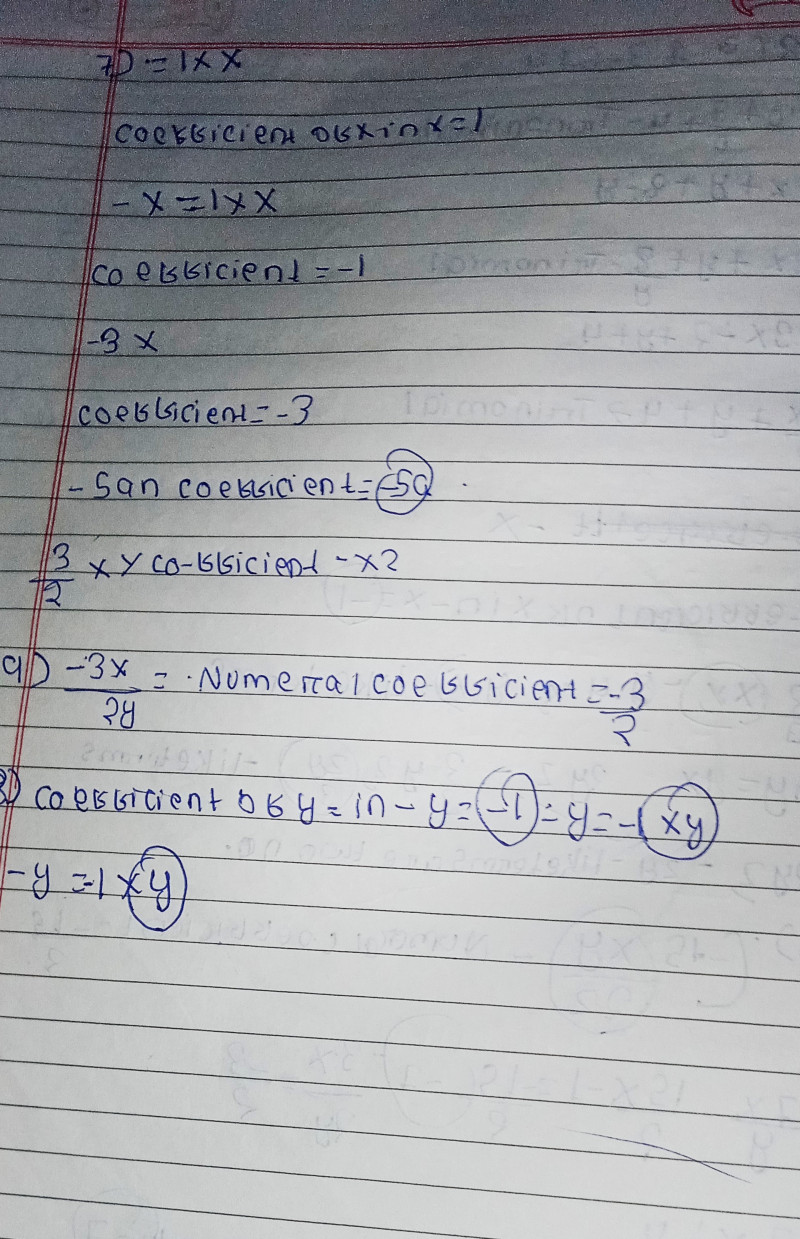 7) = 1 × x
coefficient of x in x = 1
- x = 1 × x
coefficient = -1
-3 x
coefficient = -3
- 5an coefficient = -5a
3/2 x y co-fficient - x 2
9) -3x/2y = Numerral coefficient = -3/2
8) coefficient of y = in - y = -1 = y = -1 × y
- y = -1 × y